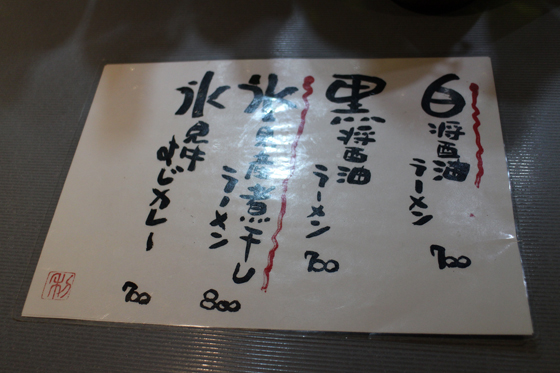 白醤油
ラーメン
700
黒醤油
ラーメン
700
氷見産煮干し
ラーメン
800
氷見牛
すじカレー
700
彩